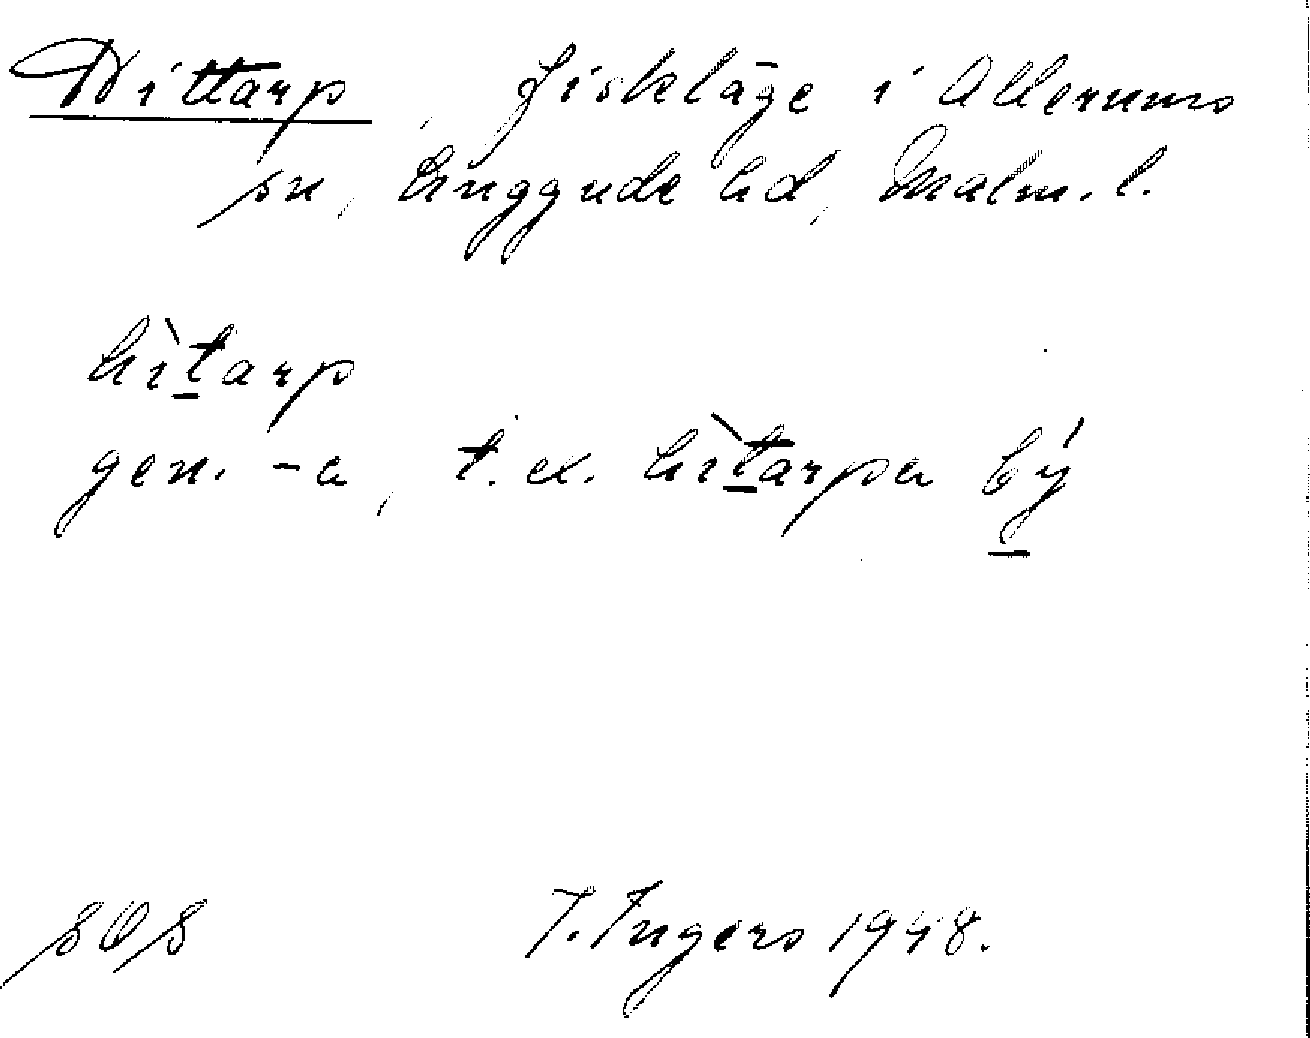 Hittarp, fiskläge i Allerums
sn, Luggude hd, Malm. l.
hìt̲arp
gen. -a, t. ex. hìt̲arpa bý̲
SOS I. Ingers 1948.